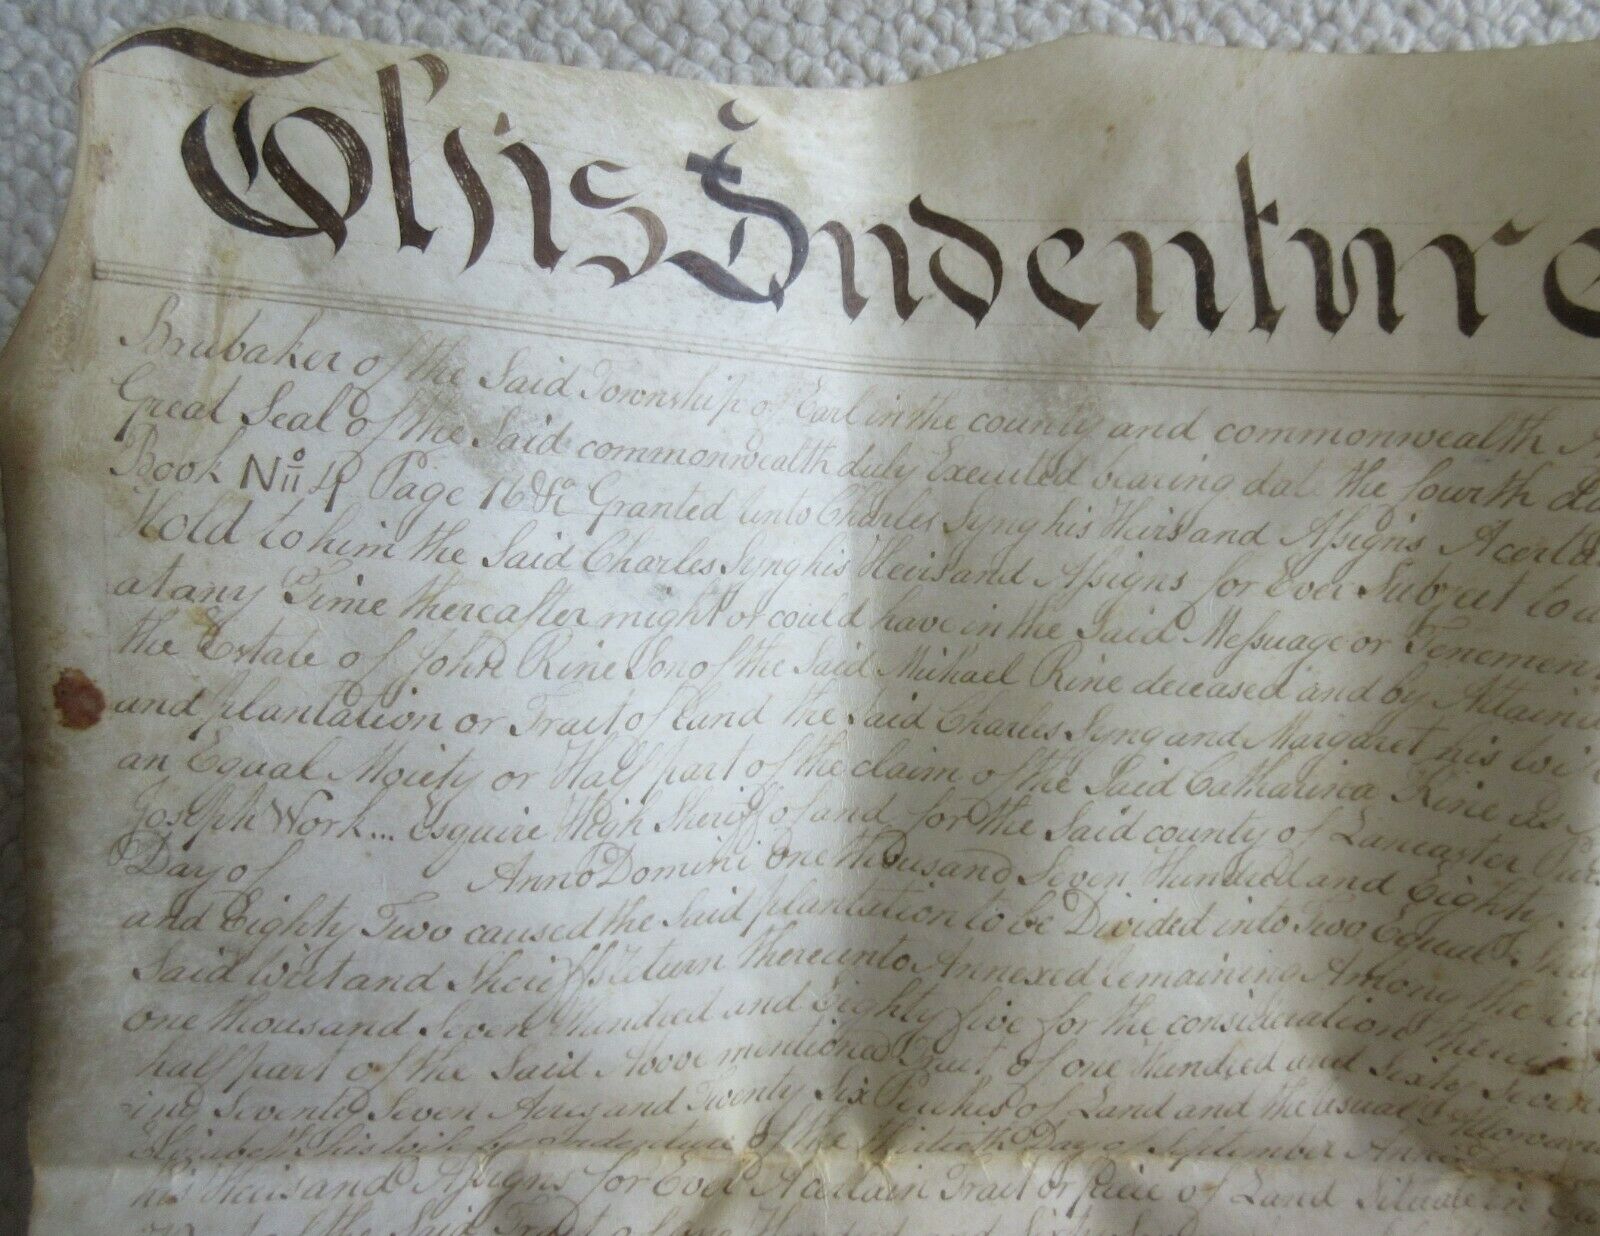 This Indenture
Brubaker of the Said Township of Earl in the county and commonwealth
Great Seal of the Said commonwealth duly Executed bearing dat the fourth da
Book No 4 Page 16 &c Granted Unto Charles Syng his Heirs and Assigns A certa
Hold to him the Said Charles Syng his Heirs and Assigns for Ever Subject to a
at any Time thereafter might or could have in the Said Messuage or Tenemen
the Estate of John Rine Son of the Said Michael Rine deceased and by Attain
and plantation or Tract of Land the Said Charles Syng and Margaret his wi
an Equal Moiety or Half part of the claim of the Said Catharina Rine as
Joseph Work... Esquire High Sheriff of and for the Said county of Lancaster Purs
Day of Anno Domini One thousand Seven Hundred and Eighty
and Eighty Two caused the Said plantation to be Divided into Two Equal Sha
Said Writ and Sheriffs Return thereunto Annexed remaining Among the rec
one thousand Seven Hundred and Eighty five for the consideration therein
half part of the Said Above mentioned Tract of one Hundred and Sixty Seven
ing Seventy Seven Acres and Twenty Six Perches of Land and the usual Allowan
Elizabeth his wife by Indenture of the thirtieth Day of September Anno Do
his Heirs and Assigns for Ever A certain Tract or piece of Land Situate in Ea
of the Said Tract of one Hundred and Sixty